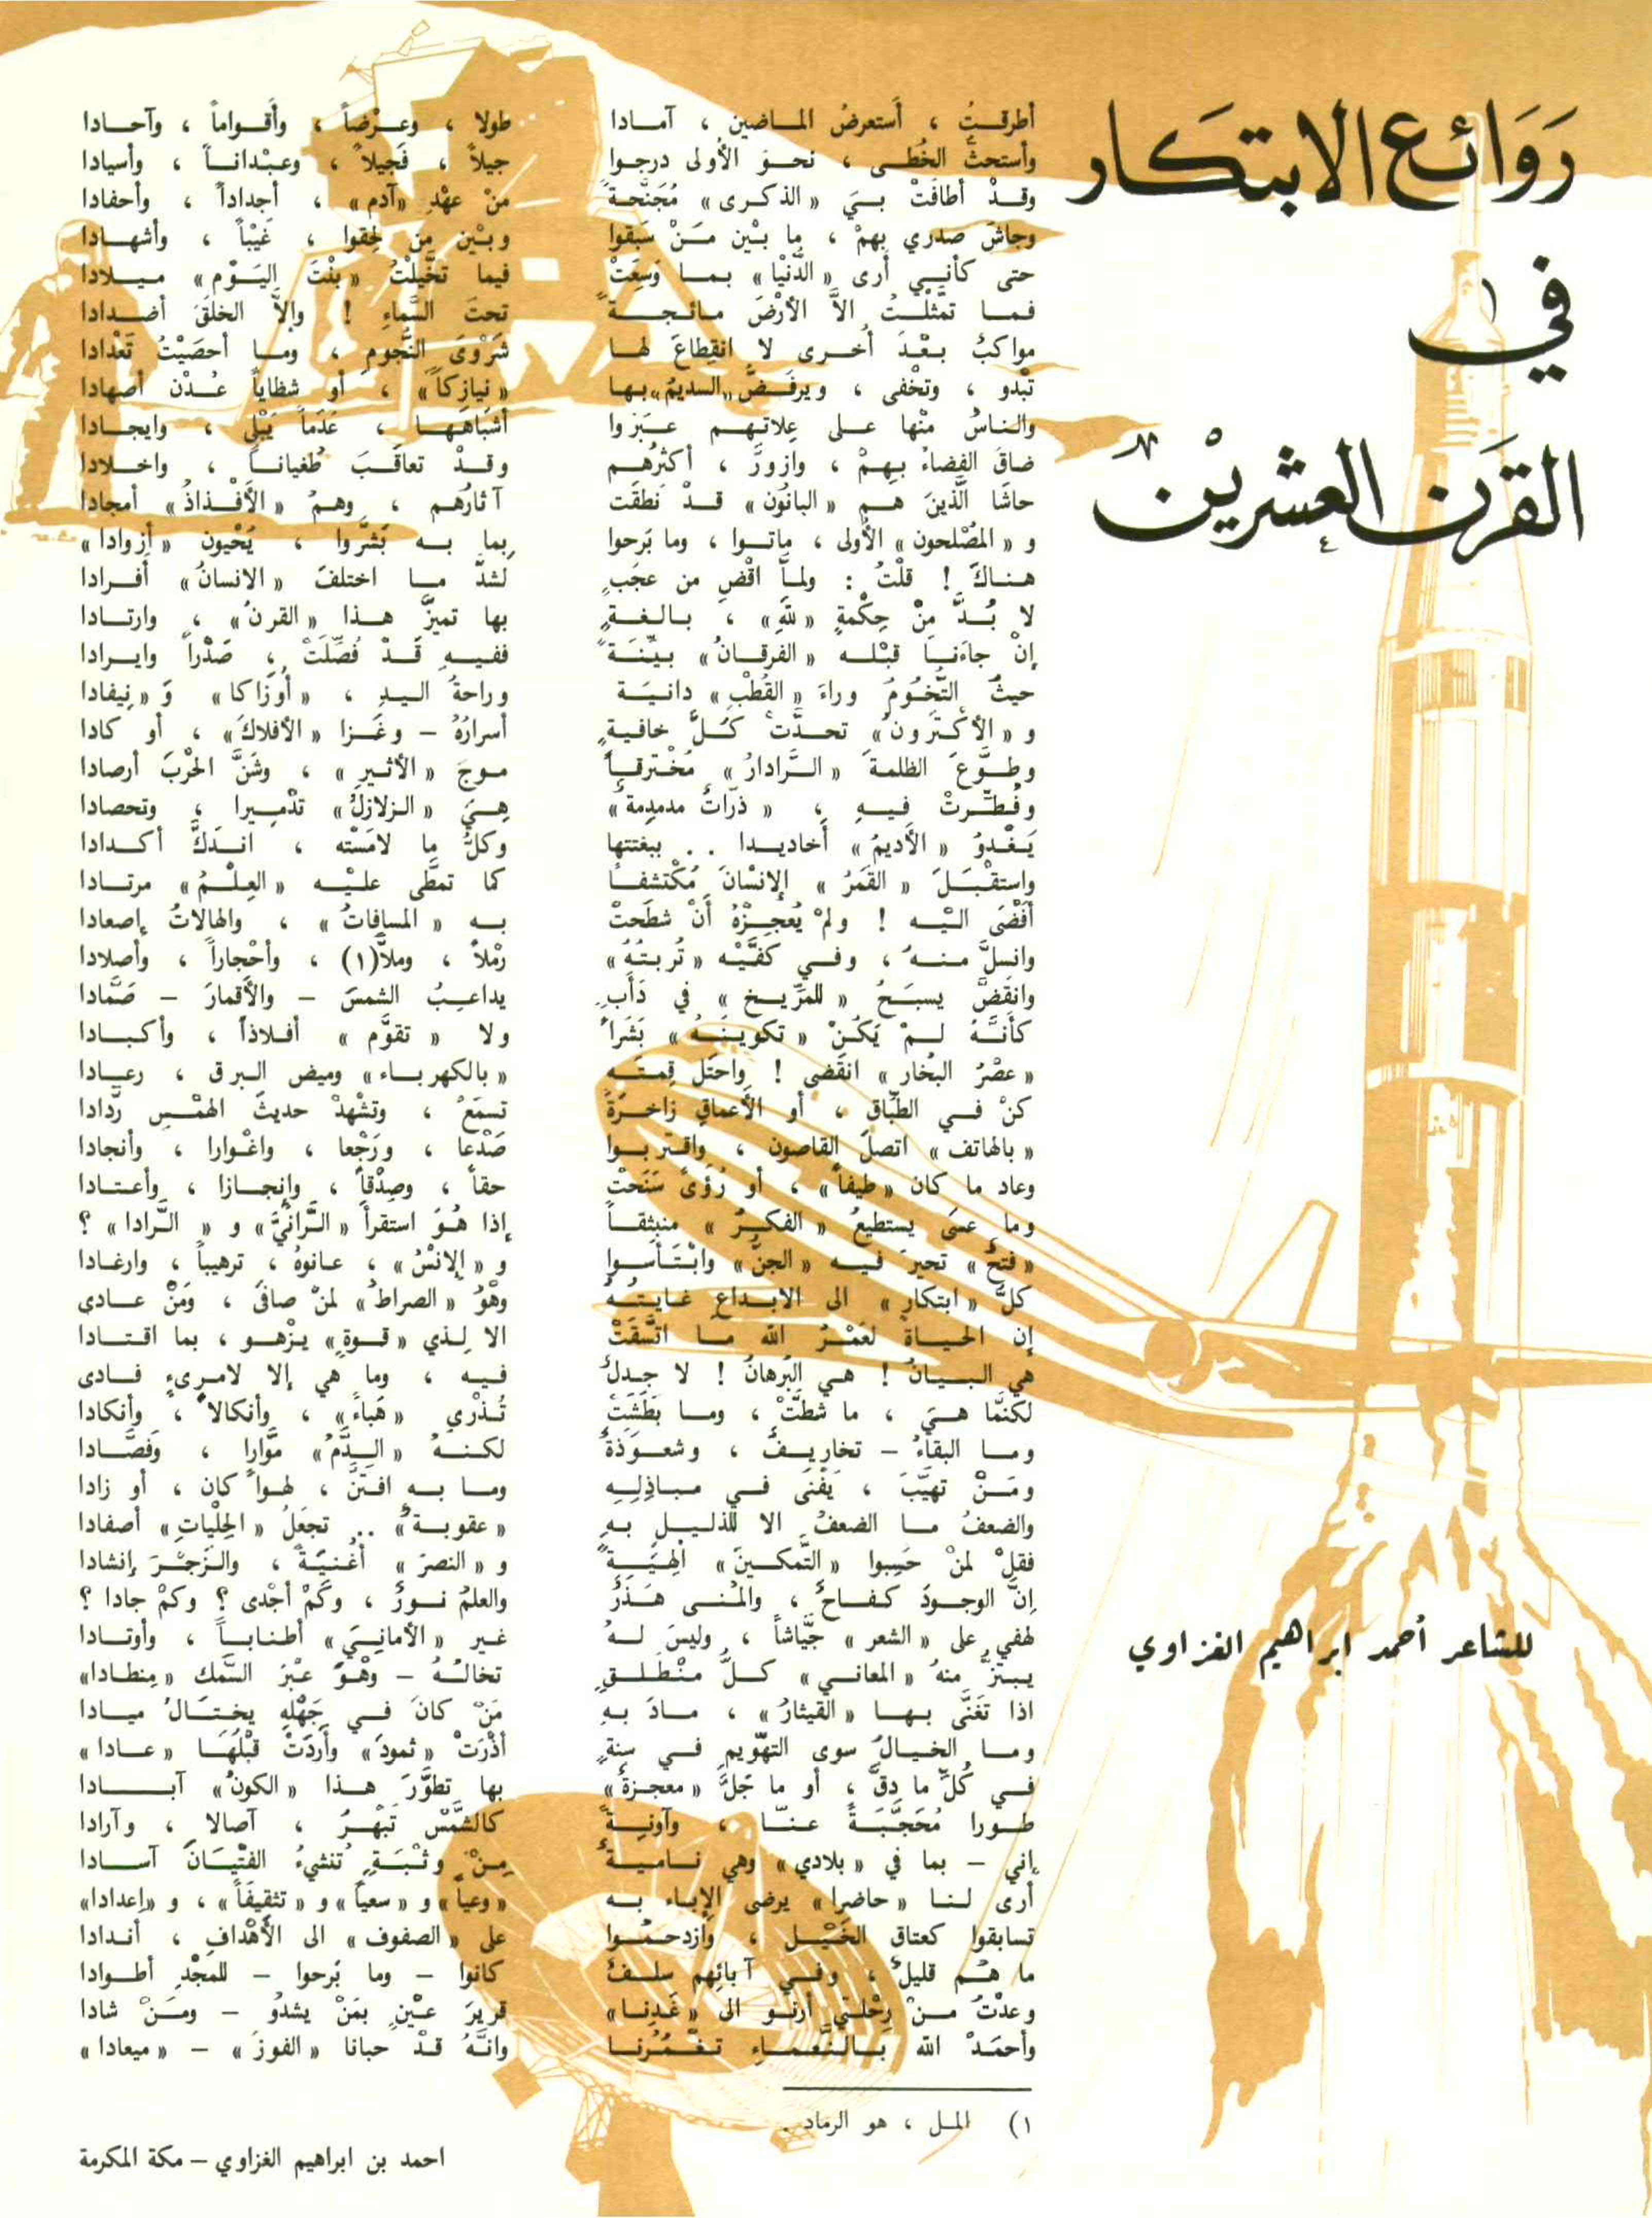 رَوَائع الابتكار
في
القرن العشرين
للشاعر أحمد ابراهيم الغزاوي
أطرقتُ ، أستعرضُ الماضين ، آمادا    طولا ، وعرْضاً ، وأقواماً ، وآحادا
وأستحثُّ الخُطى ، نحوَ الأُولى درجوا    جيلاً ، فَجيلاً ، وعبْداناً ، وأسيادا
وقدْ أطافَتْ بيَ «الذكرى» مُجَنَّحةً    منْ عهْدِ «آدم» ، أجداداً ، وأحفادا
وجاشَ صدري بهمْ ، ما بيْن مَنْ سَبقوا    وبيْن من لحِقوا ، غَيْباً ، وأشهادا
حتى كأني أرى «الدُّنْيا» بما وَسِعَتْ    فيما تخَّيلْتُ «بنْتَ اليَوْم» ميلادا
فما تمَّثلتُ الاَّ الأرْضَ مائجةً    تحتَ السَّماءِ ! وإلاَّ الخلقَ أضدادا
مواكبٌ بعْدَ أخرى لا انقِطاعَ لها    شرْوَى النُّجوم ، وما أحصَيْتُ تَعْدادا
تبْدو ، وتخْفى ، ويرفَضُّ «السديمُ» بها    «نيازِكاً» ، أو شظاياً عُدْن أصهادا
والناسُ منْها على عِلاتهم عبَروا    أشبَاهَها ، عَدَماً يَبْلى ، وايجادا
ضاقَ الفضاءُ بهِمْ ، وازورَّ ، أكثرُهم    وقدْ تعاقَبَ طُغياناً ، واخلادا
حاشَا الَّذينَ هم «البانُون» قدْ نَطقَت    آثارُهم ، وهمُ «الأَفْذاذُ» أمجادا
و «المصْلحون» الأولى ، ماتوا ، وما بَرحوا    بما به بَشَّروا ، يُحْيون «أزوادا»
هناكَ ! قلْتُ : ولمَّا اقْضِ من عجَبٍ    لشدَّ ما اختلفَ «الانسانُ» أفرادا
لا بُدَّ مِنْ حِكْمةٍ «للهِ» ، بالغةٍ    بها تميزَّ هذا «القرنُ» ، وارتادا
إنْ جاءَنا قبْله «الفرقانُ» بيِّنَةً    ففيهِ قَدْ فُصِّلَتْ ، صَدْراً وايرادا
حيثُ التُّخُومُ وراءَ «القُطْبِ» دانيَة    وراحةُ اليدِ ، «أوزَاكا» وَ «نِيفادا
و «الأكْتَرونُ» تحدَّتْ كلَّ خافيةٍ    أسرارُهُ – وغَزا «الأفلاكَ» ، أو كادا
وطوَّعَ الظلمةَ «الرَّادارُ» مُخْترقاً    موجَ «الأثيرِ» ، وشنَّ الحْربَ أرصادا
وفُطِّرتْ فيهِ ، «ذرّاتٌ مدمدِمةٌ»    هيَ «الزلازلُ» تدْميرا ، وتحصادا
يَغْدوُ «الأديمُ» أخاديدا .. ببغتتها    وكلُّ ما لامَسْته ، اندَكَّ أكدادا
واستقْبَلَ «القَمرُ» الإنسْانَ مُكْتشفاً    كما تمطَّى عليْه «العِلْمُ» مرتادا
أفْضَى اليْه ! ولمْ يُعجِزْهُ أنْ شطَحتْ    به «المسافاتُ» ، والهالاتُ إصعادا
وانسلَّ منهُ ، وفي كفَّيْه «تُربتُهُ»    رمْلاً ، وملاًّ(١) ، وأحْجاراً ، وأصلادا
وانقَضَّ يسبَحُ «للمَرِّيخ» في دَأبٍ    يداعبُ الشمسَ – والأقمارَ – صَمَّادا
كأنَّهُ لمْ يَكُنْ «تكوينُهُ» بَشَراً    ولا «تقوَّم» أفلاذاً ، وأكبادا
«عصْرُ البُخار» انقَضى ! واحتَل قِمتَه    «بالكهرباء» وميض البرق ، رعادا
كنْ في الطِّباقِ ، أو الأعماقِ زاخرَةً    تسمَعْ ، وتشْهدْ حديثَ الهمْسِ ردَّادا
«بالهاتف» اتصلَ القاصون ، واقتربوا    صَدْعا ، ورَجْعا ، واغْوارا ، وأنجادا
وعاد ما كان «طيفاً» ، أو رُؤىً سَنَحتْ    حقاً ، وصِدْقاً ، وإنجازا ، وأعتادا
وما عسَى يستطيعُ «الفكرُ» منبثقاً    إذا هُوَ استقرأ «الرَّائيَّ» و «الرَّادا» ؟
«فتحٌ» تحيرَ فيه «الجنُّ» وابْتَأسوا    و «الإنسُ» ، عانوهُ ، ترهيباً ، وارغادا
كلُّ «ابتكارٍ» الى الابداع غايتُهُ    وهْوُ «الصراطُ» لمنْ صافىَ ، ومَنْ عادى
إن الحياةَ لعَمْرُ الله ما اتَّسَقَتْ    الا لِذي «قوةٍ» يزْهو ، بما اقتادا
هي البيانُ ! هي البرهانُ ! لا جدلٌ    فيه ، وما هي إلا لامرىءٍ فادى
لكنَّما هيَ ، ما شطَّتْ ، وما بَطَشتْ    تُذْري «هَباءً» ، وأنكالاً ، وأنكادا
وما البقاءُ – تخاريفٌ ، وشعوَذةٌ    لكنهُ «الدَّمُ» مَوَّارا ، وَفَصَّادا
ومَنْ تهيَّبَ ، يَفْنَى في مباذِلِهِ    وما به افتنَّ ، لهواً كان ، أو زادا
والضعفُ ما الضعفُ الا للذليلِ بهِ    «عقوبةٌ» .. تجعَلُ «الحِلْياتِ» أصفادا
فقلْ لمنْ حَسِبوا «التَّمكينَ» الْهيَةً    و «النصرَ» أغْنيَةً ، والزَجْرَ إنشادا
إنَّ الوجودَ كفاحٌ ، والمُنى هَذَرٌ    والعلمُ نورٌ ، وكَمْ أجْدى ؟ وكمْ جادا ؟
لهفي على «الشعر» جيَّاشاً ، وليسَ لهُ    غير «الأمانيّ» أطناباً ، وأوتادا
يبتزُّ منهُ «المعاني» كلُّ منْطَلقٍ    تخالُهُ – وهْوَ عبْرَ السَّمك «مِنطادا»
اذا تغَنَّى بها «القيثارُ» ، مادَ بهِ    مَنْ كانَ في جَهْلِه يختَالُ ميادا
وما الخيالُ سوى التهْويم في سِنةٍ    أذْرَتْ «ثمودَ» وأردَتْ قبْلَهَا «عادا»
في كُلِّ ما دِقَّ ، أو ما جَلَّ «معجزةٌ»    بها تطوَّرَ هذا «الكونُ» آبادا
طورا مُحَجَّبَةً عنَّا ، وآونةً    كالشَّمْس تَبْهرُ ، آصالا ، وآرادا
إني – بما في «بلادي» وهي ناميةٌ    مِنْ وثْبَةٍ تُنشيءُ الفتْيَانَ آسادا
أرى لنا «حاضرا» يرضى الإباء به    «وعياً» و «سعياً» و «تثقيفَاً» ، و «إعدادا»
تسابقوا كعتاق الخَيْل ، وازدحمُوا    على «الصفوف» الى الأهْدافِ ، أندادا
ما هُم قليلٌ ، وفي آبائهم سلفٌ    كانوا – وما بَرحوا – للمجْدِ أطوادا
وعدْتُ منْ رِحْلتي أرنو الى «غَدِنا»    قريرَ عيْنٍ بمَنْ يشدُو – ومَنْ شادا
وأحمَدْ الله بالنَّعماءِ تغْمُرُنا    وانَّهُ قدْ حبانا «الفوزَ» – «ميعادا»
١) المل ، هو الرماد .
احمد بن ابراهيم الغزاوي – مكة المكرمة